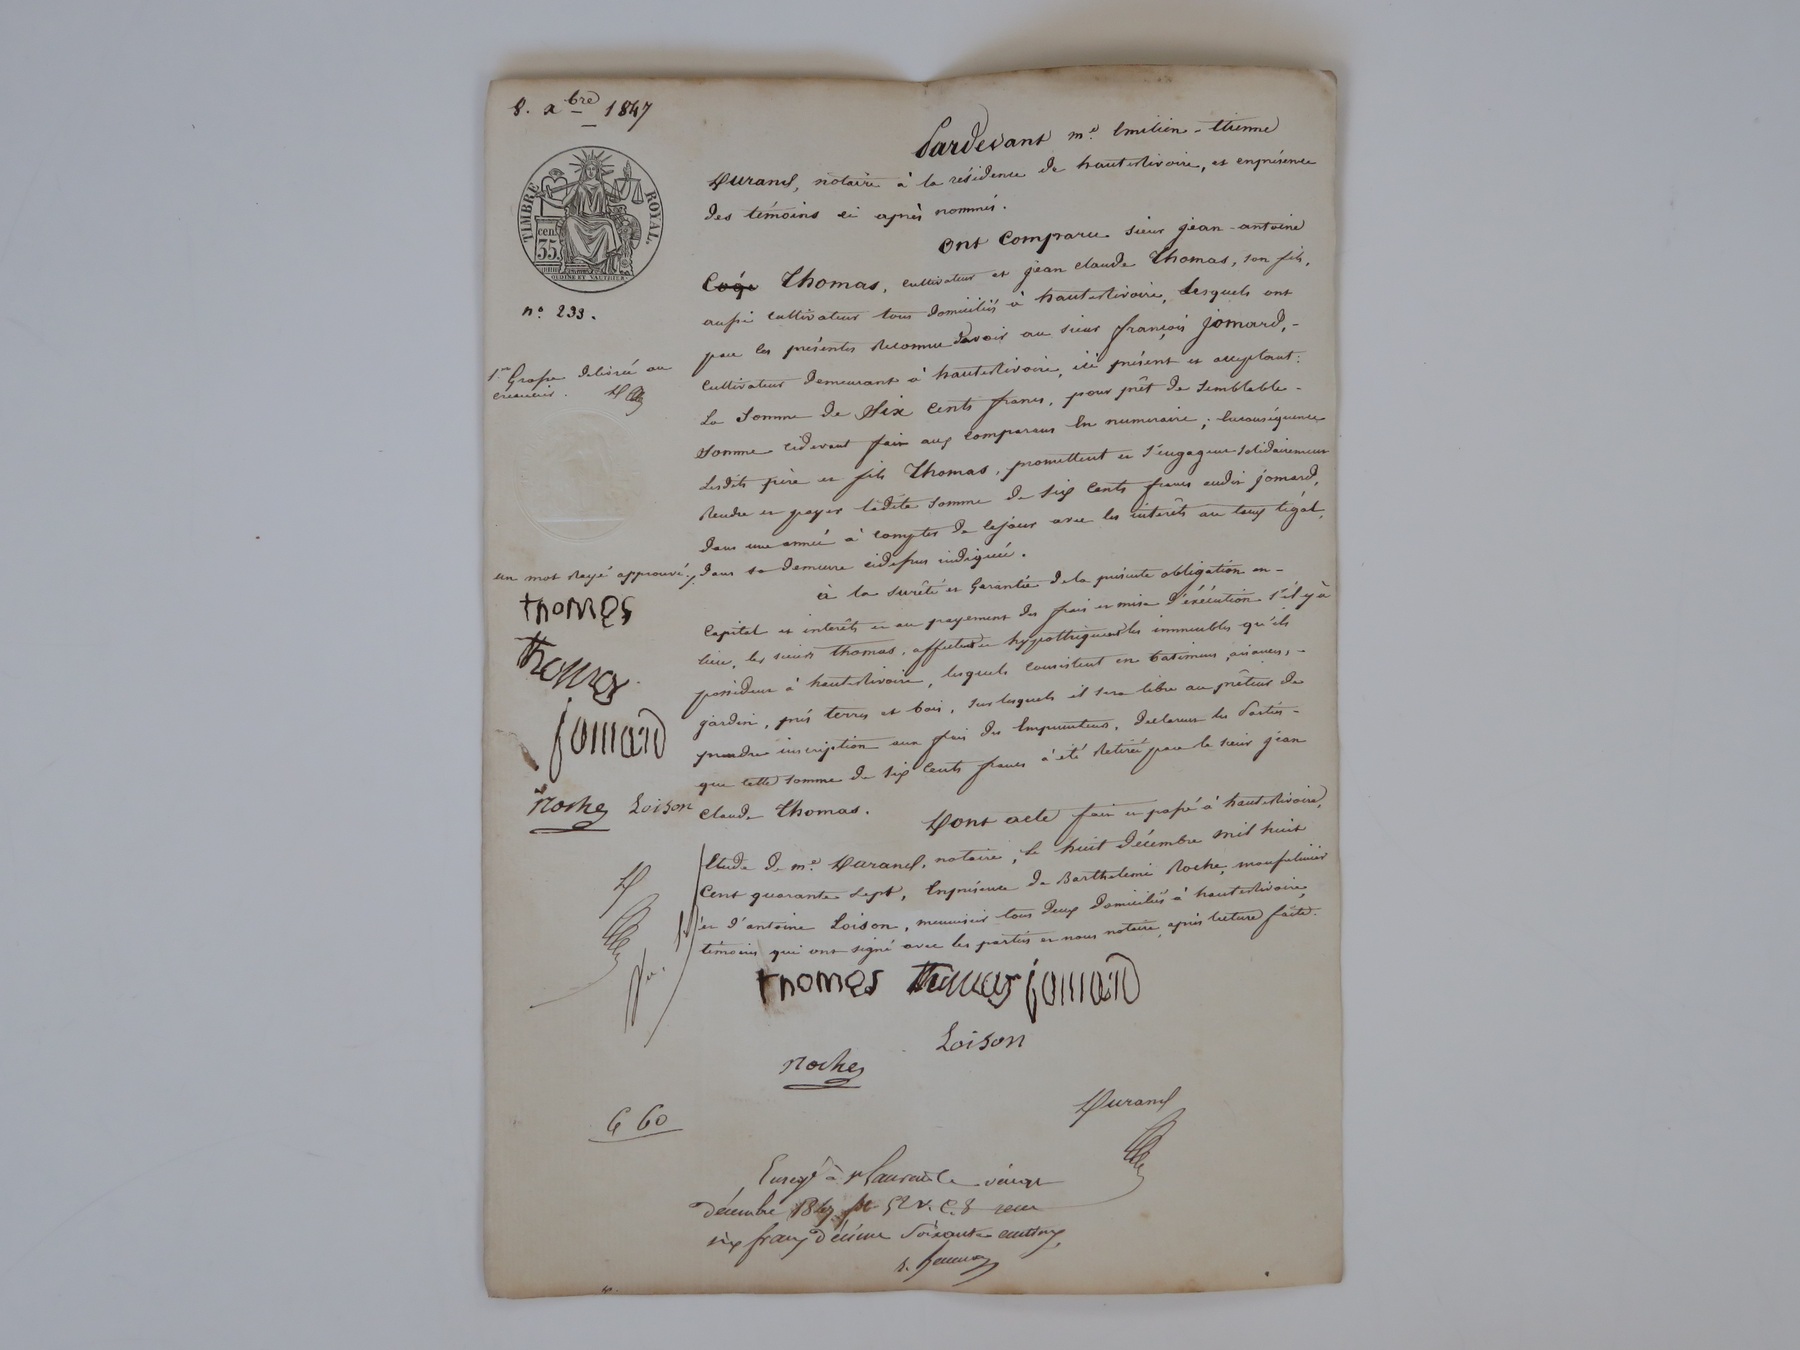 8. Xbre 1847
TIMBRE ROYAL.
cen. 35.
n.o 233.
1.re Grosse delivrée au
creancier.
un mot rayé approuvé;
thomas
Thomas
jomard
Roche Loison
Pardevant m.e Emilien-Etienne
Durand, notaire à la résidence de hauterivoire, et enprésence
des témoins ci après nommés.
Ont Comparu sieur jean-antoine
Thomas, cultivateur et jean claude Thomas, son fils,
aussi cultivateur tous domiciliés à hauterivoire, Lesquels ont
par les présentes Reconnu devoir au sieur françois jomard,-
Cultivateur demeurant à hauterivoire, ici présent et acceptant:
La Somme de Six Cents francs, pour prêt de semblable-
Somme cidevant fait aux Comparans En numeraire; Enconséquence
Lesdits père et fils Thomas, promettent et s'engagent solidairement
Rendre et payer ladite Somme de six Cents francs audit jomard,
dans une année à compter de cejour avec les intérêts au taux légal,
dans sa demeure cidessus indiquée.
à la sureté et Garantie dela présente obligation en-
Capital et intérêts et au payement des frais et mise d'exécution s'il y à
lieu, les sieurs thomas, affectent et hypothèquent les immeubles qu'ils
possèdent à hauterivoire, lesquels consistent en batimens, aisances,-
jardin, prés terres et bois, sur lesquels il sera libre au prêteur de
prendre inscription aux frais des Emprunteurs, declarant les Parties-
que cette somme de six Cents francs à été Retirée par le sieur jean
Claude Thomas.
Dont acte fait et passé à hauterivoire,
Etude de m.e Durand, notaire, le huit décembre mil huit
Cent quarante sept, Enprésence de Barthelemi Roche,
et d'antoine Loison, menuisier tous deux domiciliés à hauterivoire,
témoins qui ont signé avec les parties et nous notaire après lecture faite.
thomas Thomas jomard
Loison
Roche
Durand
6 60
décembre 1847 fo 52 v. C. 8 reçu
six francs décime soixante centimes